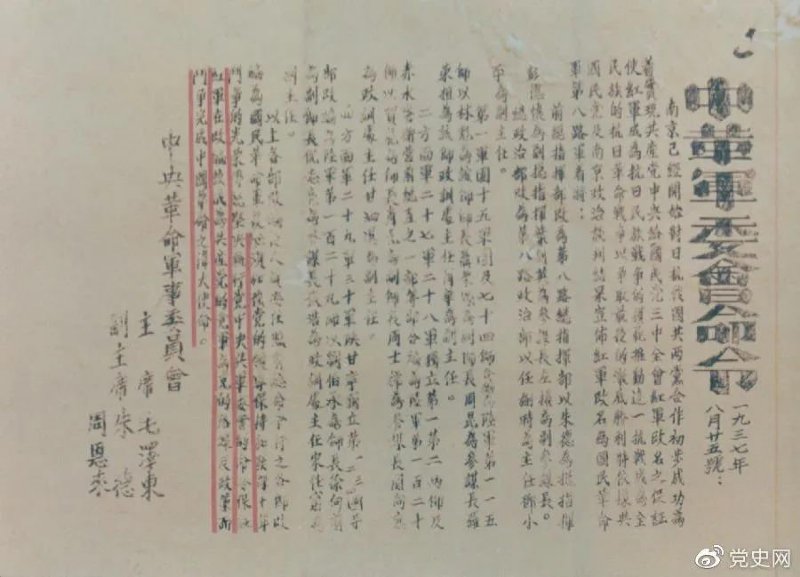 中華軍委會命令
一九三七年
八月廿五號：
南京已經開始對日抗戰國共兩黨合作初步成功為
着實現共產黨中央給國民黨三中全會紅軍改名之保証
使紅軍成為抗日民族戰爭的模範推動這一抗戰成為全
民族的抗日革命戰爭以爭取最後的澈底勝利特依據與
國民党及南京政府談判結果宣佈紅軍改名為國民革命
軍第八路軍着將：
前總指揮部改為第八路總指揮部以朱德為總指揮
彭德懷為副總指揮葉劍英為參謀長左權為副參謀長。
總政治部改為第八路政治部以任弼時為主任鄧小
平為副主任。
第一軍團十五軍團及七十四師合編為陸軍第一一五
師以林彪為該師師長聶榮臻為副師長周昆為參謀長羅
榮桓為該師政訓處主任蕭華為副主任。
二方面軍二十七軍二十八軍獨立第一第二兩師及
赤水警衛營前總直之一部等部合編為陸軍第一百二十
師以賀龍為師長蕭克為副師長周士第為參謀長關向應
為政訓處主任甘泗淇為副主任。
四方面軍二十九軍三十軍陝甘寧獨立第一二三四等
部改編為陸軍第一百二十九師以劉伯承為師長徐向前
為副師長倪志亮為參謀長張浩為政訓處主任宋任窮為
副主任。
以上各部改編後人員委任照前總命令行之各部改
編為國民革命軍後必須加強黨的領導保持和發揚十年
鬥爭的光榮傳統堅決執行党中央與軍委會的命令保証
紅軍在改編後成為共產党的党軍為党的路線及政策而
鬥爭完成中國革命之偉大使命。
中央革命軍事委員會
主席毛澤東
副主席朱德
周恩來
党史网